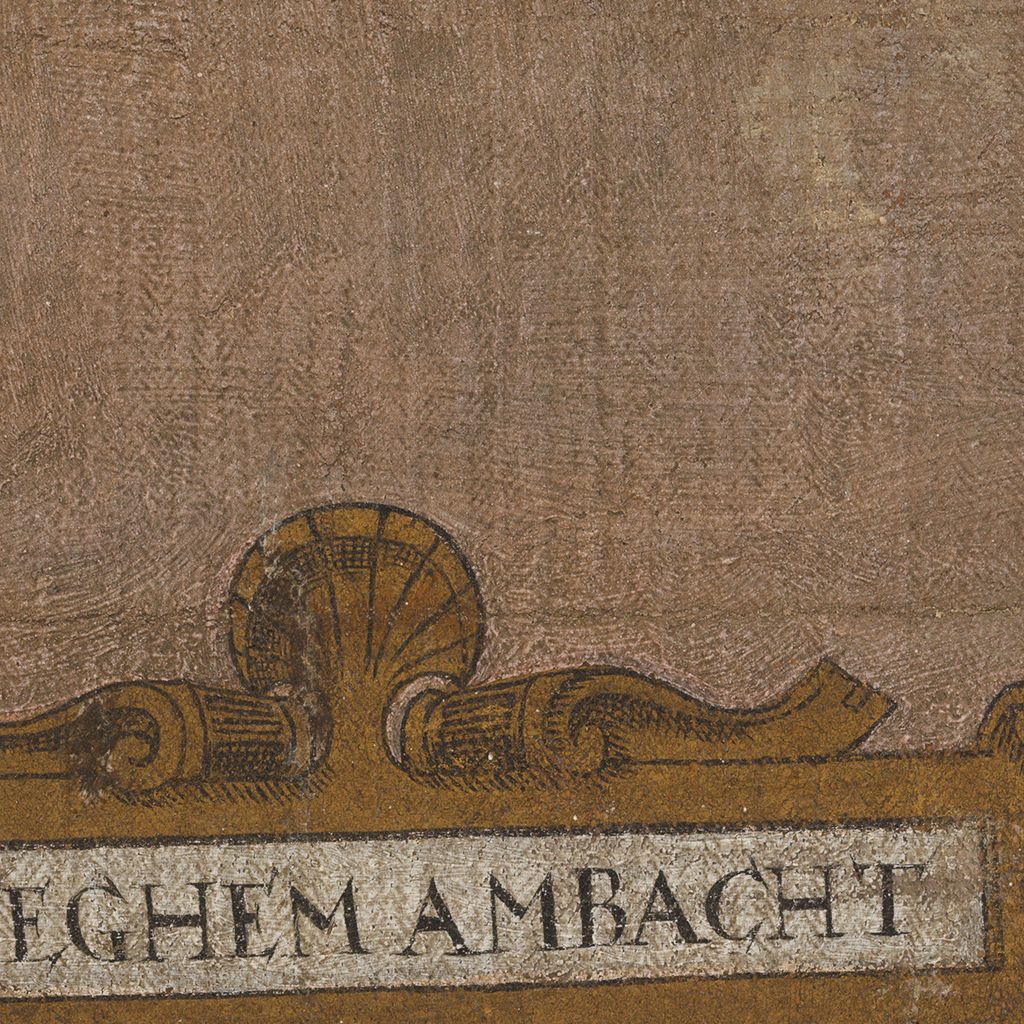 EGHEM AMBACHT